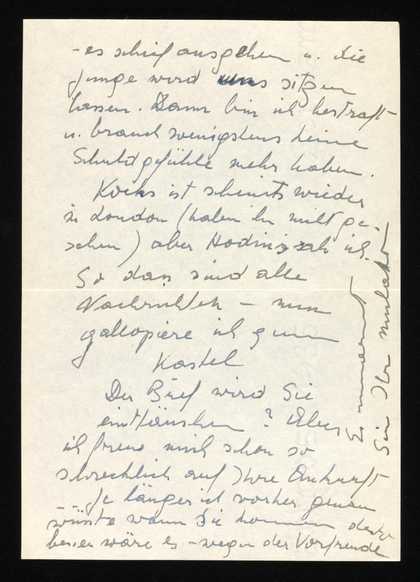 - es schief ausgehen u. die
Junge wird uns sitzen
lassen. Dann bin ich bestraft
u. brauch wenigstens keine
Schuldgefühle mehr haben.
Koens ist scheints wieder
in London (haben ihn nicht ge-
sehen) aber Hodin sah ich.
So das sind alle
Nachrichten – nun
gallopiere ich zum
Kastel
Der Brief wird Sie
enttäuschen? Aber
ich freue mich schon so
schrecklich auf Ihre Ankunft
... Je länger ich vorher genau
wüsste wann Sie kommen desto
besser wäre es – wegen der Vorfreude
Sie Ihr